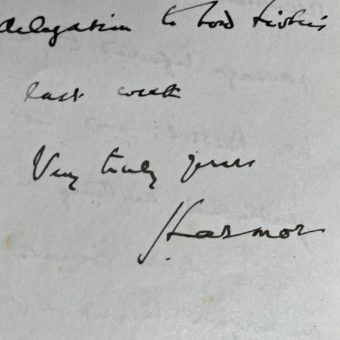 delegation to Lord Lister's
last week
Very truly yours
J Larmor